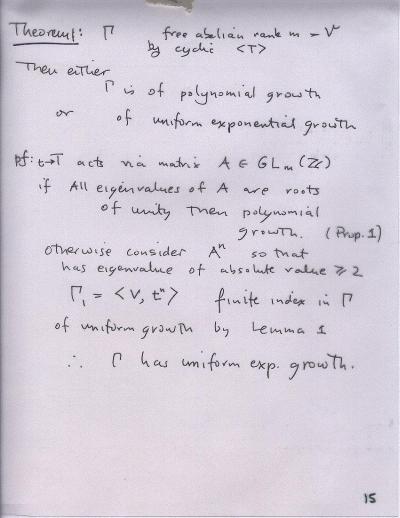 Theorem1: Γ free abelian rank m = V
by cyclic <T>
Then either
Γ is of polynomial growth
or of uniform exponential growth
pf: t→T acts via matrix A ∈ GLm(ℤ)
if All eigenvalues of A are roots
of unity then polynomial
growth. (Prop. 1)
otherwise consider Aⁿ so that
has eigenvalue of absolute value ≥ 2
Γ₁ = <V, tⁿ> finite index in Γ
of uniform growth by Lemma 1
∴ Γ has uniform exp. growth.
15